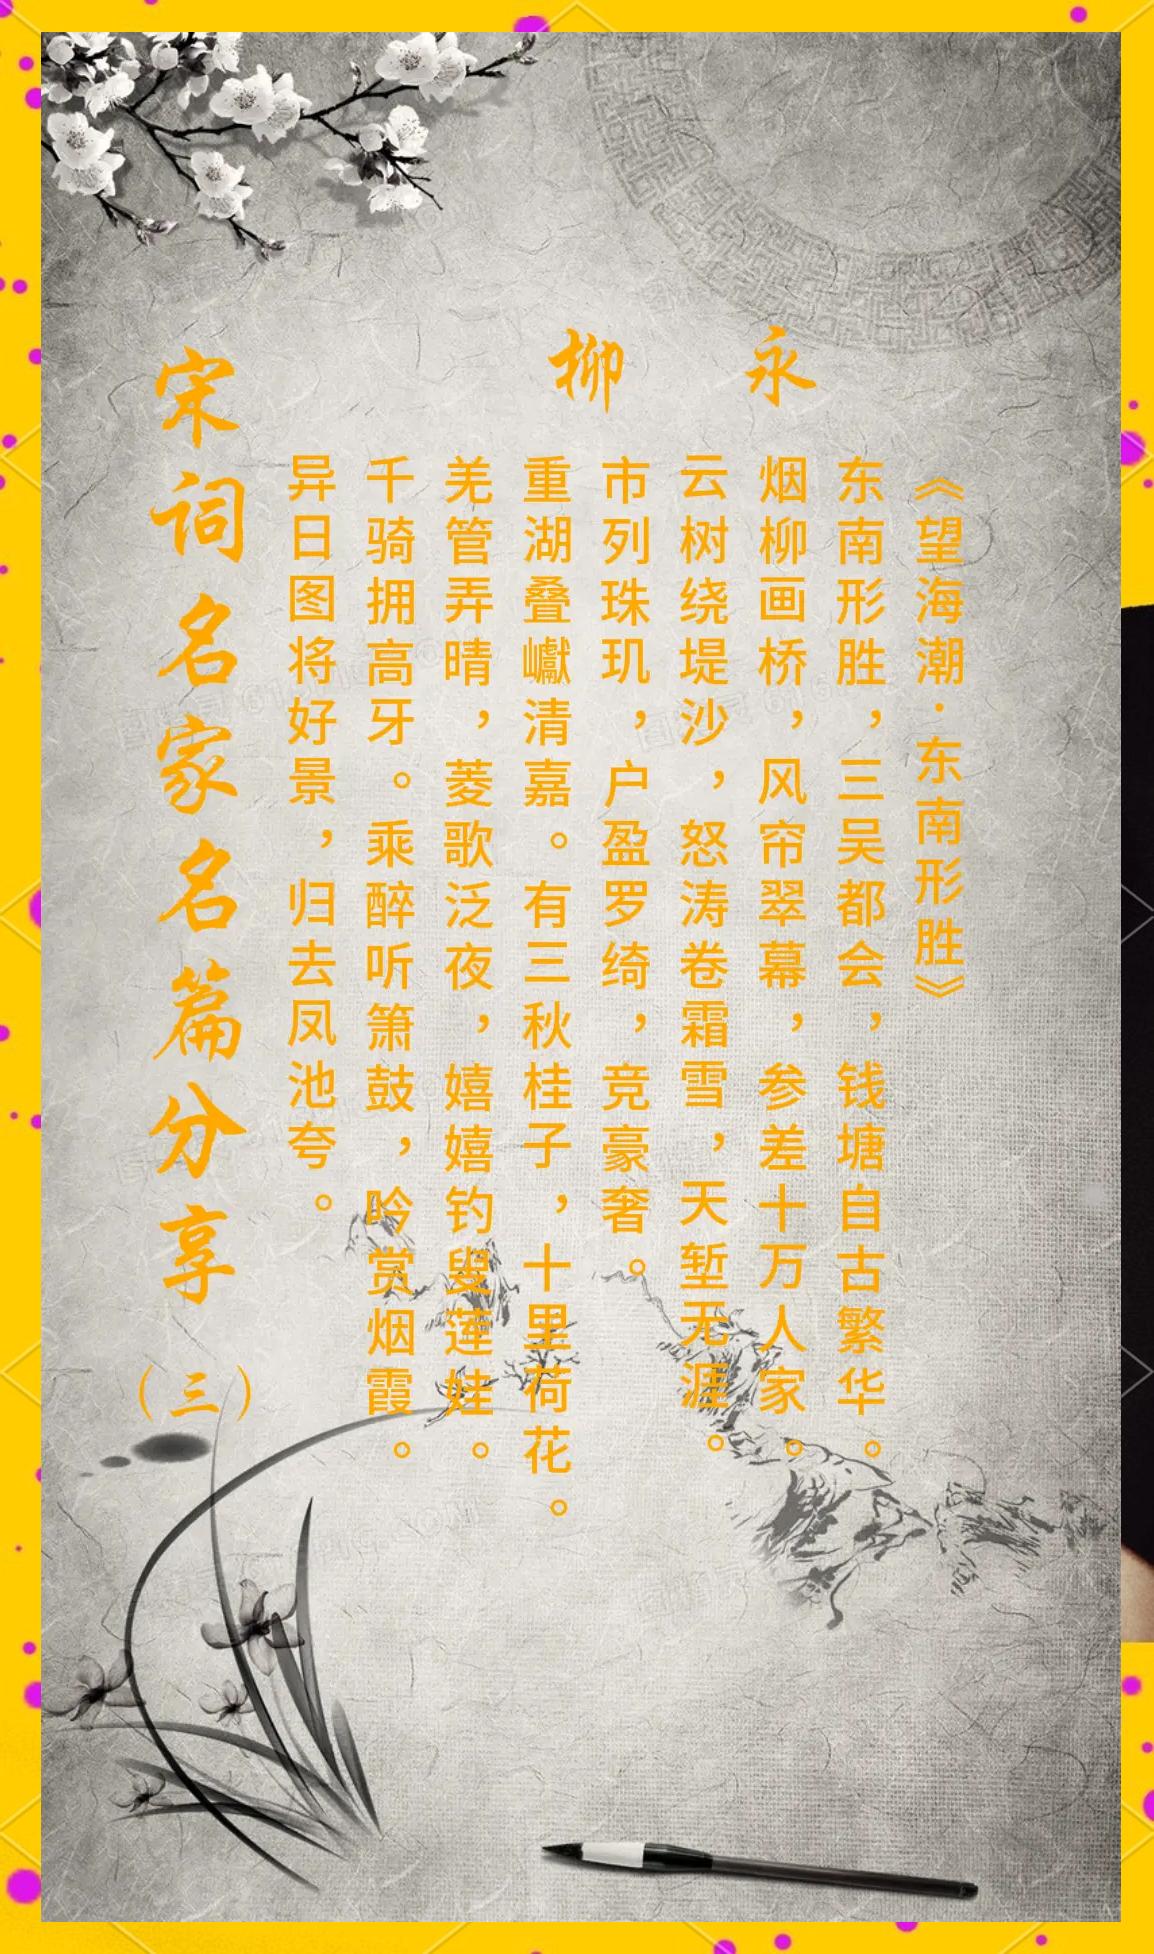 柳永
《望海潮·东南形胜》
东南形胜，三吴都会，钱塘自古繁华。
烟柳画桥，风帘翠幕，参差十万人家。
云树绕堤沙，怒涛卷霜雪，天堑无涯。
市列珠玑，户盈罗绮，竞豪奢。
重湖叠巘清嘉。有三秋桂子，十里荷花。
羌管弄晴，菱歌泛夜，嬉嬉钓叟莲娃。
千骑拥高牙。乘醉听箫鼓，吟赏烟霞。
异日图将好景，归去凤池夸。
宋词名家名篇分享（三）